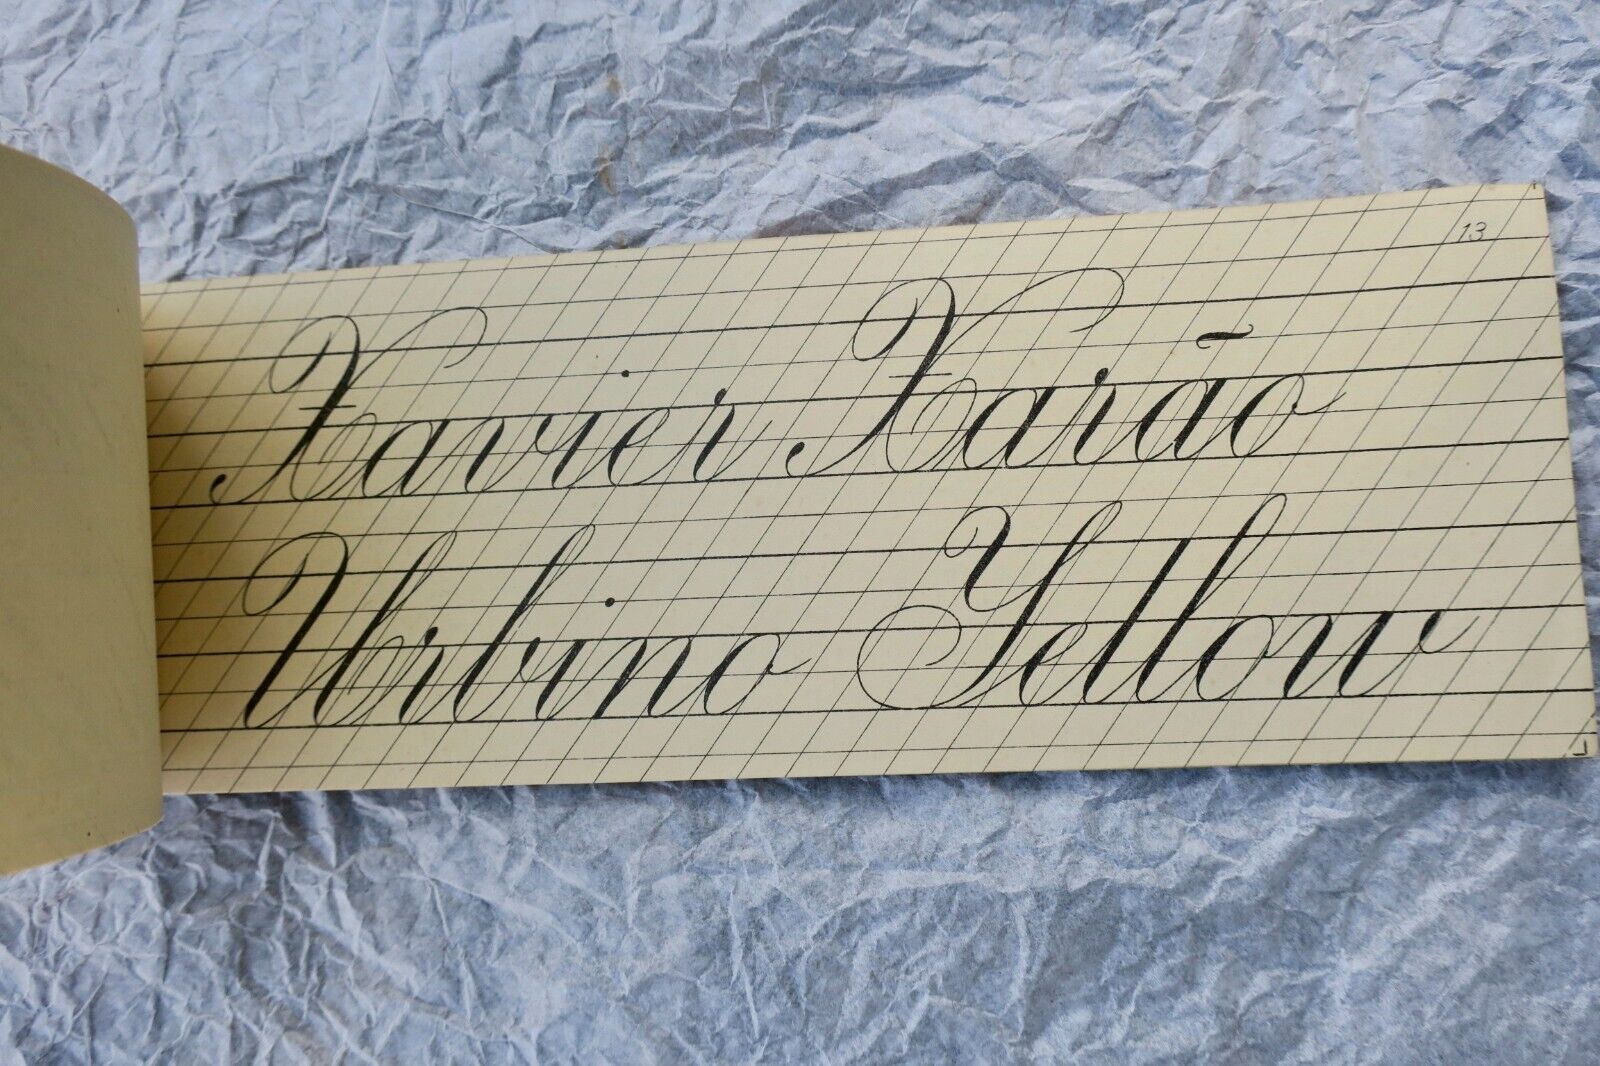 13
Xavier Xarão
Urbino Yellow